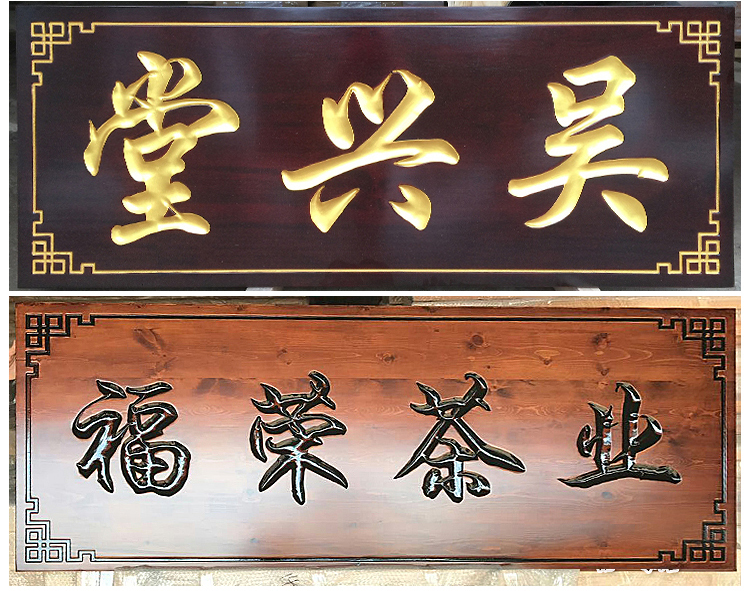 吴兴堂
福荣茶业